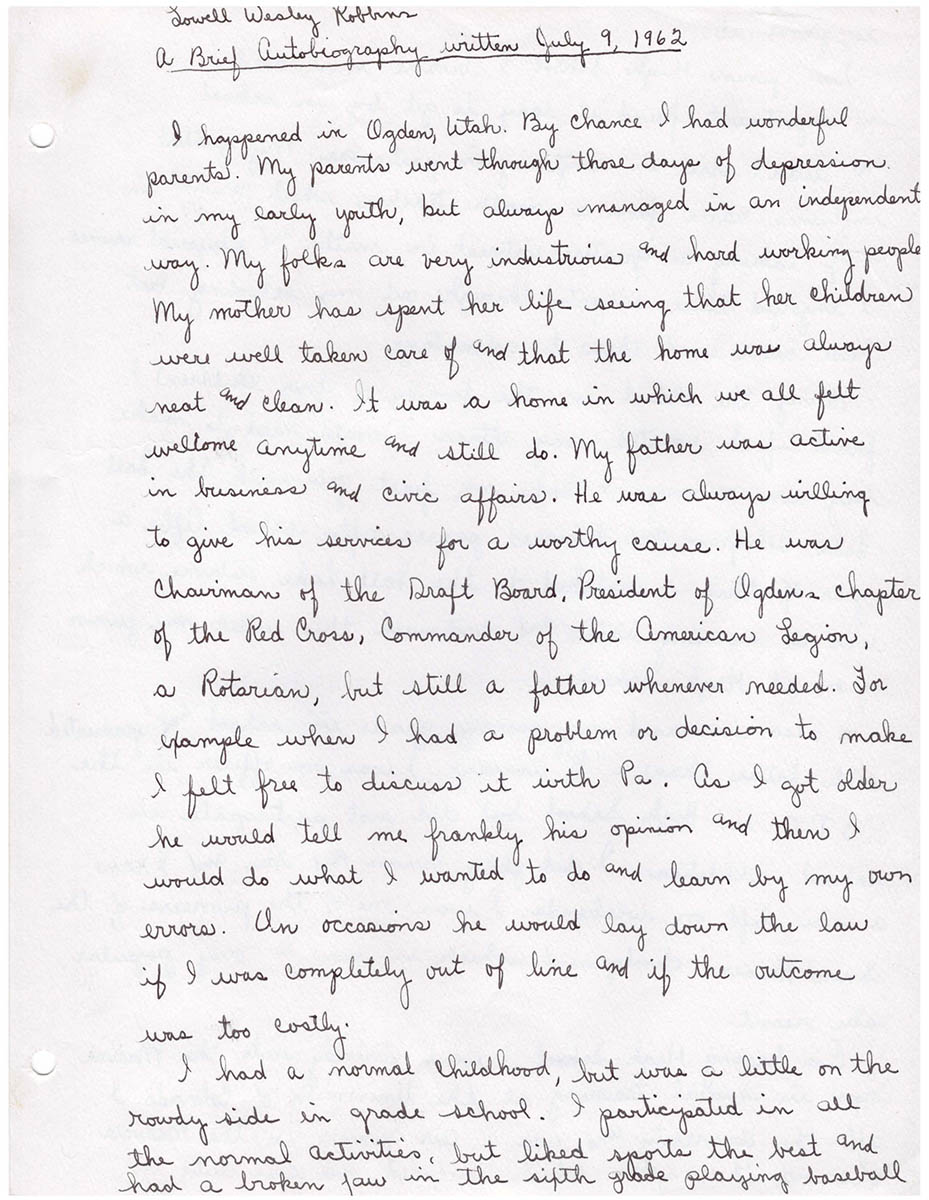 Lowell Wesley Robbins
A Brief Autobiography written July 9, 1962
I happened in Ogden, Utah. By chance I had wonderful
parents. My parents went through those days of depression
in my early youth, but always managed in an independent
way. My folks are very industrious and hard working people
My mother has spent her life seeing that her children
were well taken care of and that the home was always
neat and clean. It was a home in which we all felt
wellcome anytime and still do. My father was active
in business and civic affairs. He was always willing
to give his services for a worthy cause. He was
Chairman of the Draft Board, President of Ogdens Chapter
of the Red Cross, Commander of the American Legion,
a Rotarian, but still a father whenever needed. For
example when I had a problem or decision to make
I felt free to discuss it with Pa. As I got older
he would tell me frankly his opinion and then I
would do what I wanted to do and learn by my own
errors. On occasions he would lay down the law
if I was completely out of line and if the outcome
was too costly.
I had a normal childhood, but was a little on the
rowdy side in grade school. I participated in all
the normal activities, but liked sports the best and
had a broken jaw in the sixth grade playing baseball